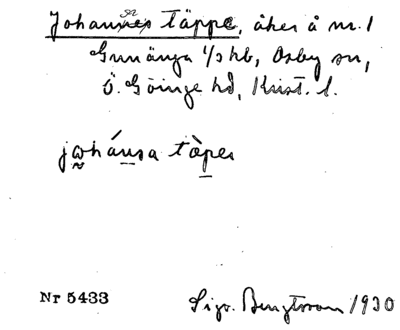 Johannes täppe, åker å nr. 1
Gunänga 1/3 hb, Osby sn,
Ö. Göinge hd, Krist. l.
johánsa tὰper
Nr 5433
Sigv. Bengtsson 1930